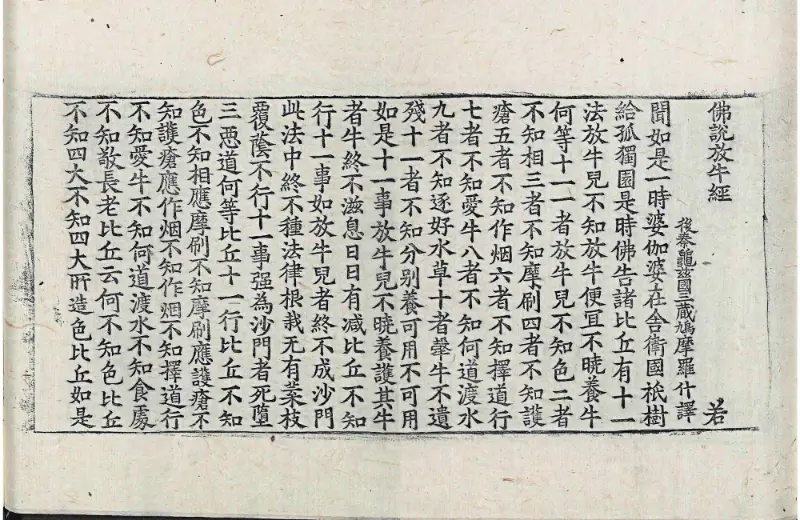 佛說放牛經 若
後秦龜玆國三藏鳩摩羅什譯
聞如是一時婆伽婆在舍衛國祇樹
給孤獨園是時佛告諸比丘有十一
法放牛兒不知放牛便宜不曉養牛
何等十一一者放牛兒不知色二者
不知相三者不知摩刷四者不知護
瘡五者不知作烟六者不知擇道行
七者不知愛牛八者不知何道渡水
九者不知逐好水草十者㲉牛不遺
殘十一者不知分别養可用不可用
如是十一事放牛兒不曉養護其牛
者牛終不滋息日日有减比丘不知
行十一事如放牛兒者終不成沙門
此法中終不種法律根栽无有葉枝
覆蔭不行十一事强為沙門者死墮
三惡道何等比丘十一行比丘不知
色不知相應摩刷不知摩刷應護瘡不
知護瘡應作烟不知作烟不知擇道行
不知愛牛不知何道渡水不知食處
不知敬長老比丘云何不知色比丘
不知四大不知四大所造色比丘如是